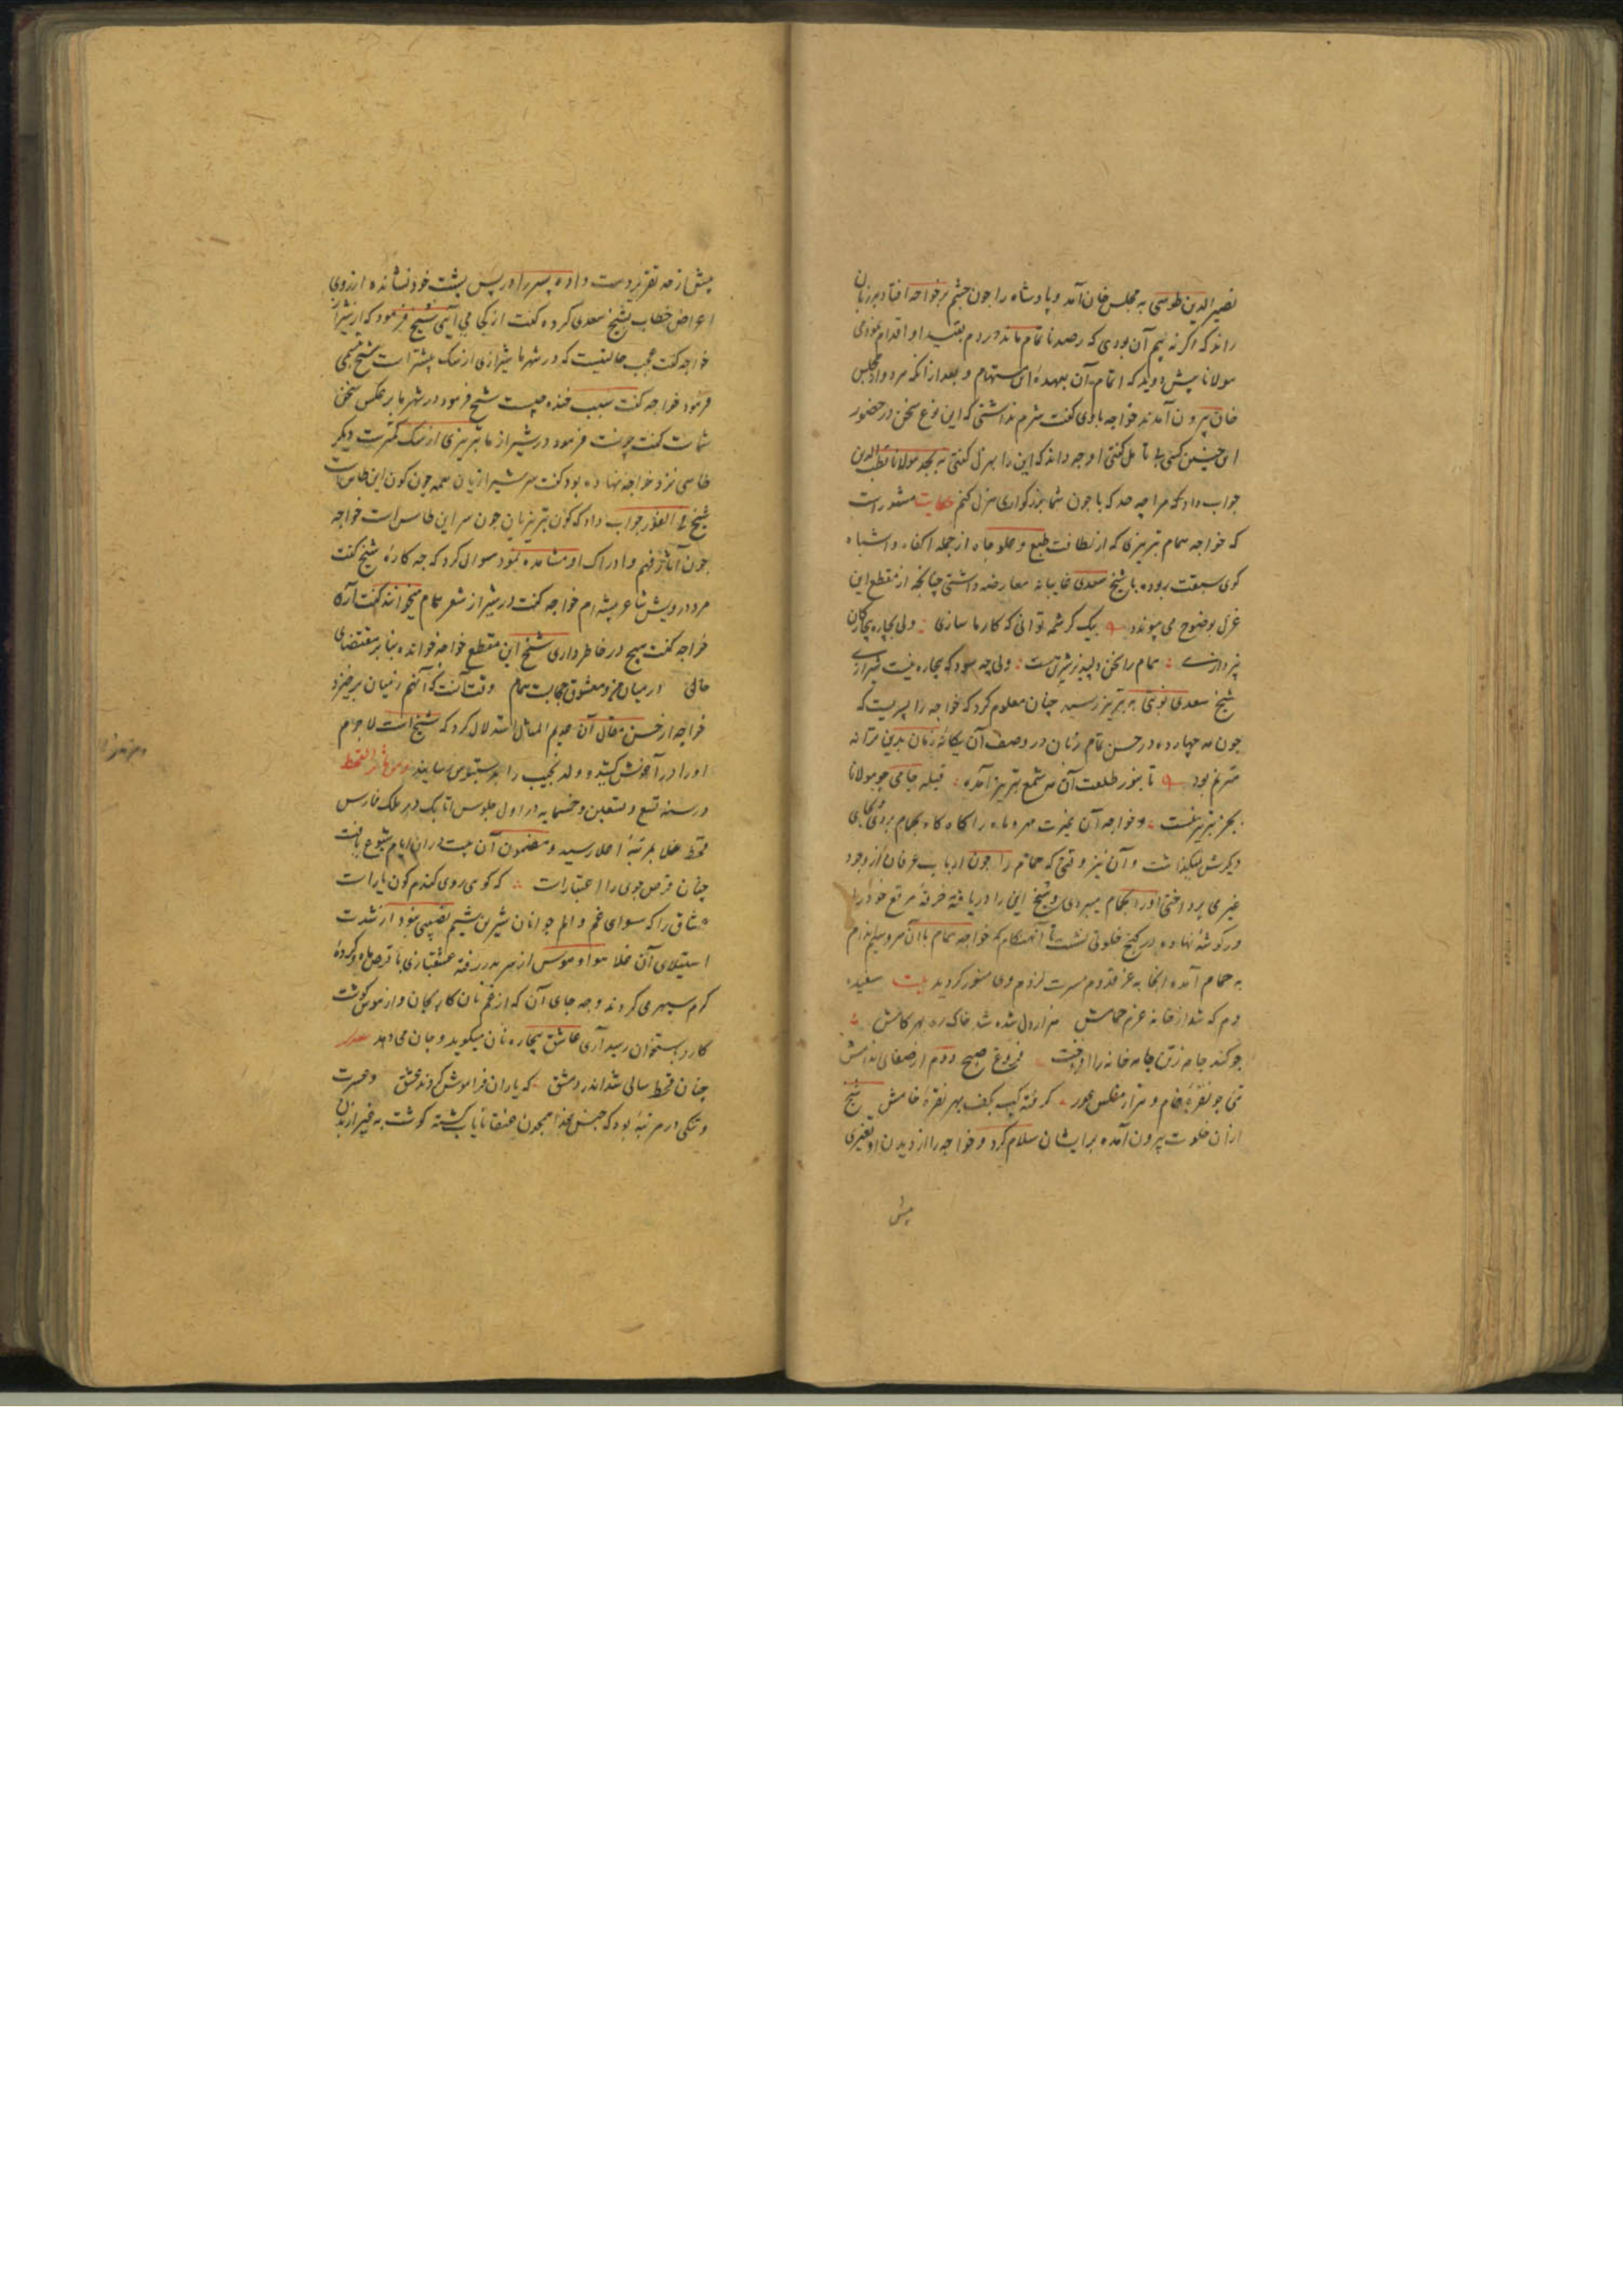 نصیرالدین طوسی به مجلس خان آمد و پادشاه را چون چشم بر خواجه افتاد بر زبان
راند که اگر نه بیم آن بودی که رصد ناتمام ماند در دم بقتید او اقدام نمودمی
مولانا پیش دوید که اتمام آن بعهدهٔ این مستهام و بعد از انکه هر دو از مجلس
خان بیرون آمدند خواجه با وی گفت شرم نداشتی که این نوع سخن در حضور
این چنین کسی بی تامل گفتی او چه داند که این را بهزل گفتی نه بجد مولانا قطب الدین
جواب داد که مرا چه حد که با چون شما بزرگواری هزل کنم حکایت مشهور است
که خواجه همام تبریزی که از لطافت طبع و علو جاه از جمله اکفاء و اشباه
گوی سبقت ربوده با شیخ سعدی غایبانه معارضه داشتی چنانچه از مقطع این
غزل بوضوح می پیوندد بیک کرشمه توانی که کار ما سازی ولی بچاره بیچارگان
نپردازی همام را سخن دلپذیر شیرین هست ولی چه سود که بیچاره نیست شیرازی
شیخ سعدی نوبتی به تبریز رسید چنان معلوم کرد که خواجه را پسریست که
چون مه چهارده در حسن تمام زنان در وصف آن یگانه زمان بدین ترانه
مترنم بود تا بنور طلعت آن مه شمع تبریز آمده قبله جامی چو مولانا
بجز تبریز نیست و خواجه آن غیرت مهر و ماه را گاه گاه بحمام بردی و بجای
دیگرش نگذاشت و آن نیز وقتی که حمام را چون ارباب عرفان از وجود
غیری پرداختی او را بحمام میبردی و شیخ این را دریافته خرقهٔ مرقع خود را
در گوشهٔ نهاده در کنج خلوتی نشست تا آنهنگام که خواجه همام با آن سرو سیم اندام
به حمام آمده انجا به عز قدوم مسرت لزوم وی منور گردید بیت سفیده
دم که شد از خانه عزم حمامش هزار دل شده شد خاک ره بهر گامش
چو کند جامه ز تن جامه خانه را افروخت فروغ صبح دوم از صفای اندامش
تنی چو نقرهٔ خام و هزار مفلس عور گرفته کیسه بکف بهر نقرهٔ خامش شیخ
از ان خلوت بیرون آمده بر ایشان سلام کرد و خواجه را از دیدن او تغیری
پیش
پیش از حد تقریر دست داده پسر را در پس پشت خود نشانده از روی
اعراض خطاب بشیخ سعدی کرده گفت از کجا می آیی شیخ فرمود که از شیراز
خواجه گفت عجب حالیست که در شهر ما شیرازی از سگ بیشتر است شیخ تبسمی
فرمود خواجه گفت سبب خنده چیست شیخ فرمود در شهر ما بر عکس سخن
شماست گفت چونست فرمود در شیراز ما تبریزی از سگ کمترست دیگر
طاسی نزد خواجه نهاده بود گفت سر شیرازیان همه چون کون این طاس است
شیخ فی الفور جواب داد که کون تبریزیان چون سر این طاس است خواجه
چون آثار فهم و ادراک او مشاهده نمود سوال کرد که چه کارهٔ شیخ گفت
مرد درویش شاعر پیشه ام خواجه گفت در شیراز شعر همام میخوانند گفت آری
خواجه گفت هیچ در خاطر داری شیخ این مقطع خواجه خوانده بنا بر مقتضای
حالی در میان من و معشوق حجابست همام وقت آنست که آنهم ز میان برخیزد
خواجه از حسن مقال آن عدیم المثال استدلال کرد که شیخ است لا جرم
او را در آغوش کشیده ولد نجیب را بدستبوس رسانید وقوع القحط
در سنه تسع و تسعین و خمسمایه در اول جلوس اتابک در ملک فارس
قحط غلا بمرتبهٔ اعلا رسید و مضمون آن بیت در ان ایام شیوع یافت
چنان قرص جوی را اعتبار است که گوی روی گندم گون یار است
عشاق را که سوای غم و الم جوانان شیرین شیم نصیبی نبود از شدت
استیلای آن غلا هوا و هوس از سر بدر رفته عشقبازی با قرص ماه و گردهٔ
گرم سپهر می کردند و چه جای آن که از غم نان کار بجان و از هوس گوشت
کارد باستخوان رسید آری عاشق بیچاره نان میگوید و جان می دهد
چنان قحط سالی شد اندر دمشق که یاران فراموش کردند عشق و عسرت
و تنگی در مرتبهٔ بود که جنس غذا همچون عنقا نایاب گشته گوشت به غیر از زبان